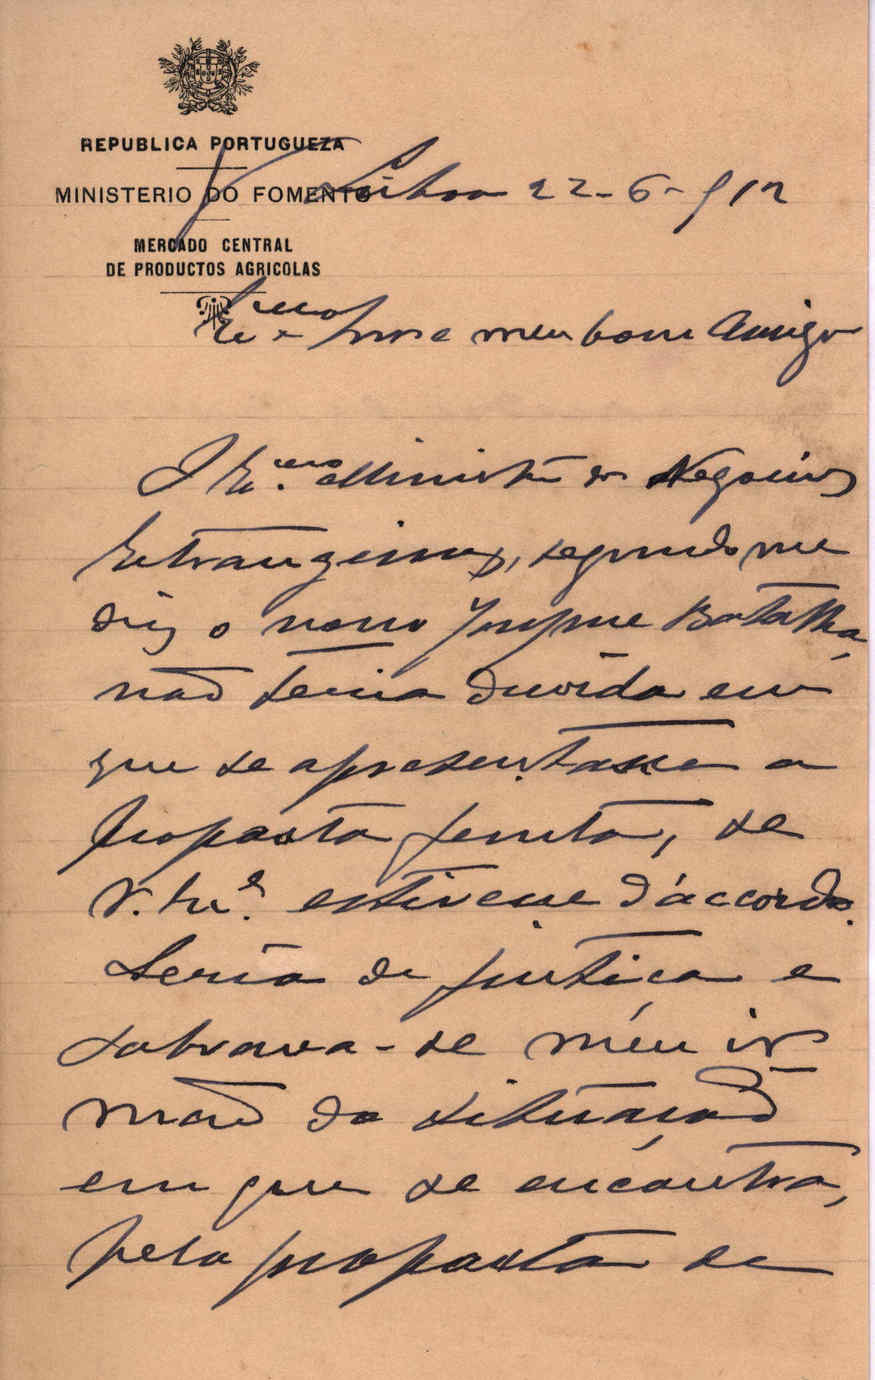 REPUBLICA PORTUGUEZA
MINISTERIO DO FOMENTO
MERCADO CENTRAL
DE PRODUCTOS AGRICOLAS
Lisboa 22-6-912
Exmo Snr e meu bom Amigo
O Exmo Ministro dos Negocios
Estrangeiros, segundo me
diz o nosso Batalha,
não teria duvida em
que se apresentasse a
proposta junta, se
V. Exª. estivesse d'accordo.
Seria de justica e
salvava-se meu ir
mão da situação
em que se encontra,
pela proposta de